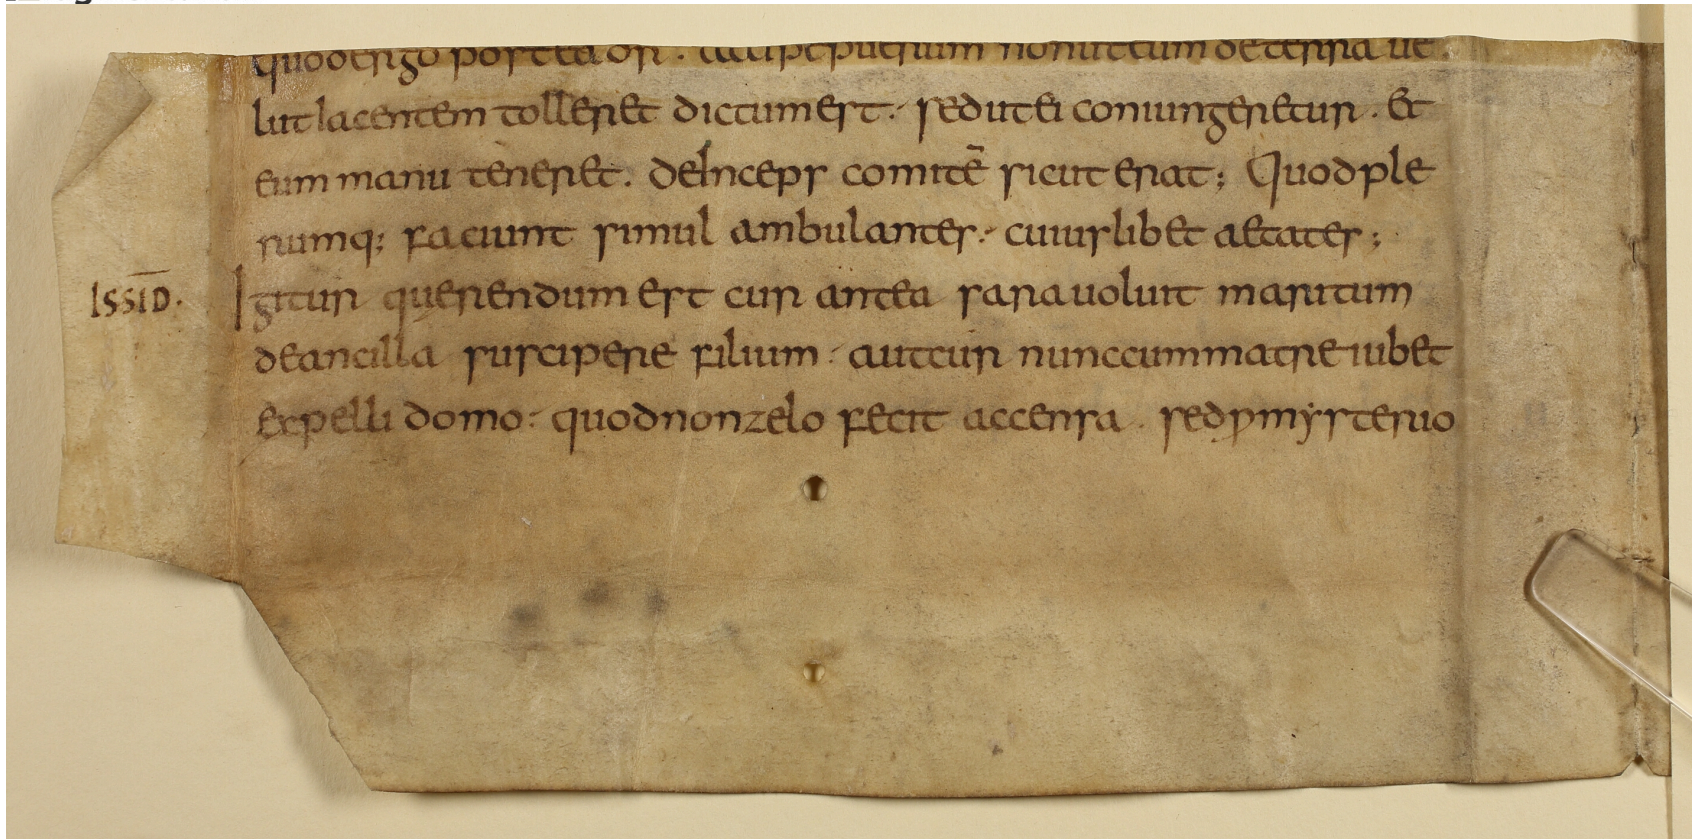 quod ergo postea dr̄. accipe puerum non ut eum de terra ue
lut lacentem tolleret dictum est. sed ut ei coniungeretur. et
eum manu teneret. deInceps comitē sicut erat; Quod ple
rumq; faciunt simul ambulantes. cuiuslibet aetates;
ISSID. Igitur querendum est cur antea sara uoluit maritum
de ancilla suscipere filium. aut cur nunc cum matre iubet
expelli domo. quod non zelo fecit accensa. sed ꝑ mẏsterio